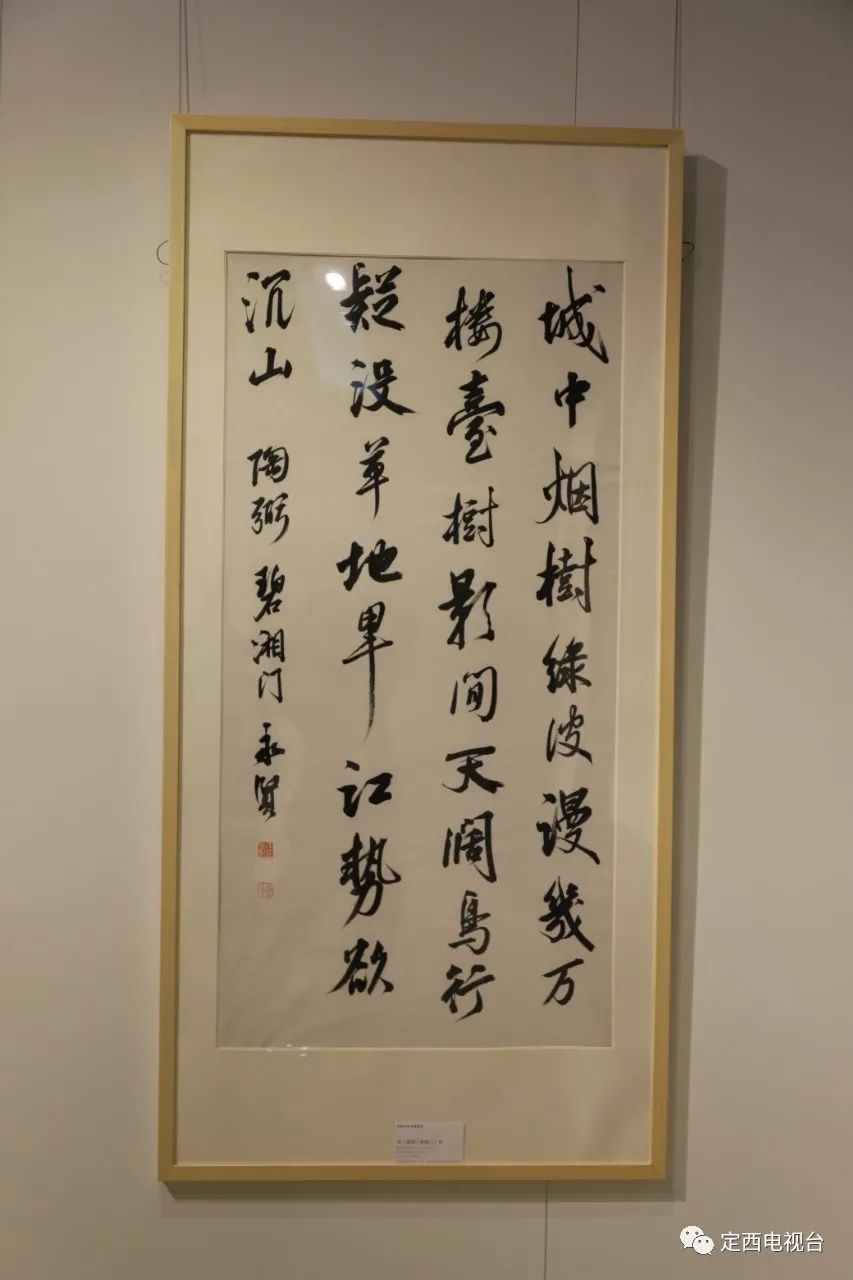 城中烟樹綠波漫幾万
楼臺樹影間天阔鳥行
疑没草地卑江勢欲
沉山 陶弼 碧湘门 永贤
定西电视台